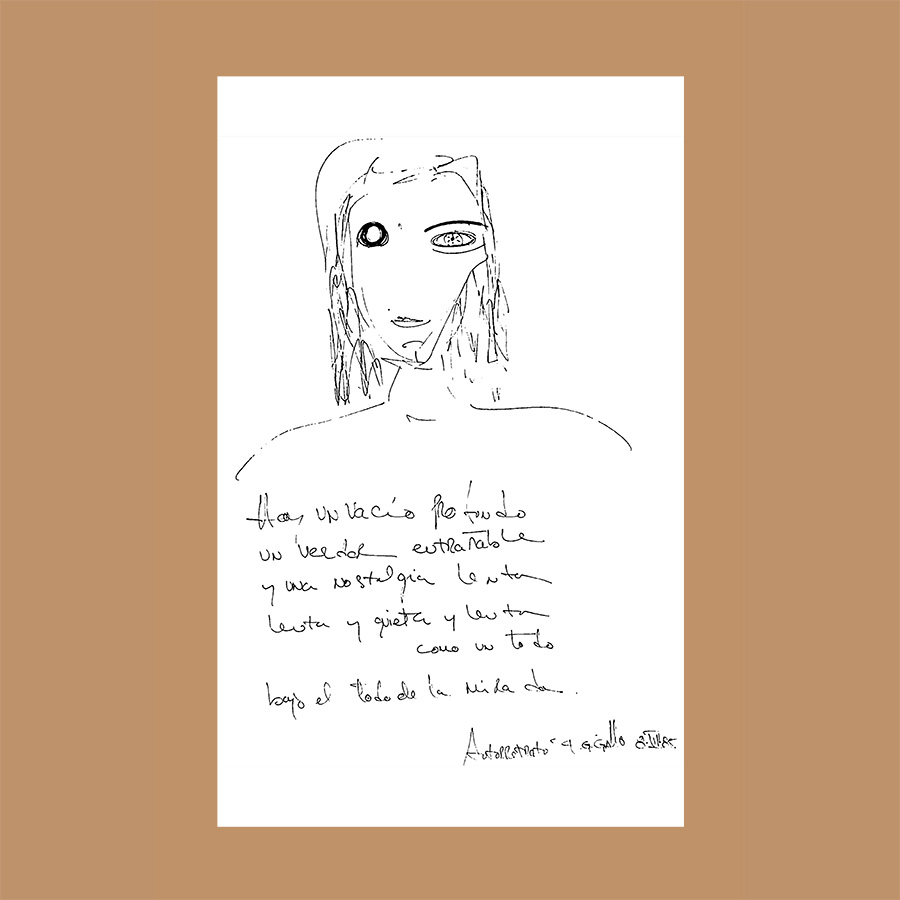 Hay un vacío profundo
un verdor entrañable
y una nostalgia lenta
lenta y quieta y lenta
como un todo
bajo el todo de la mirada.
Autorretrato